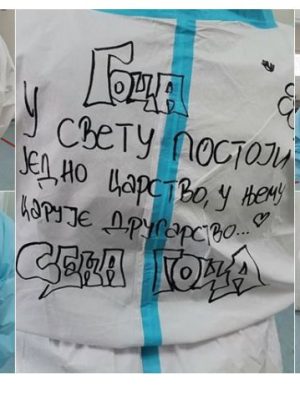 Гоца
У СВЕТУ ПОСТОЈИ
ЈЕДНО ЦАРСТВО, У ЊЕМУ
ЦАРУЈЕ ДРУГАРСТВО...
СЕКА ГОЦА